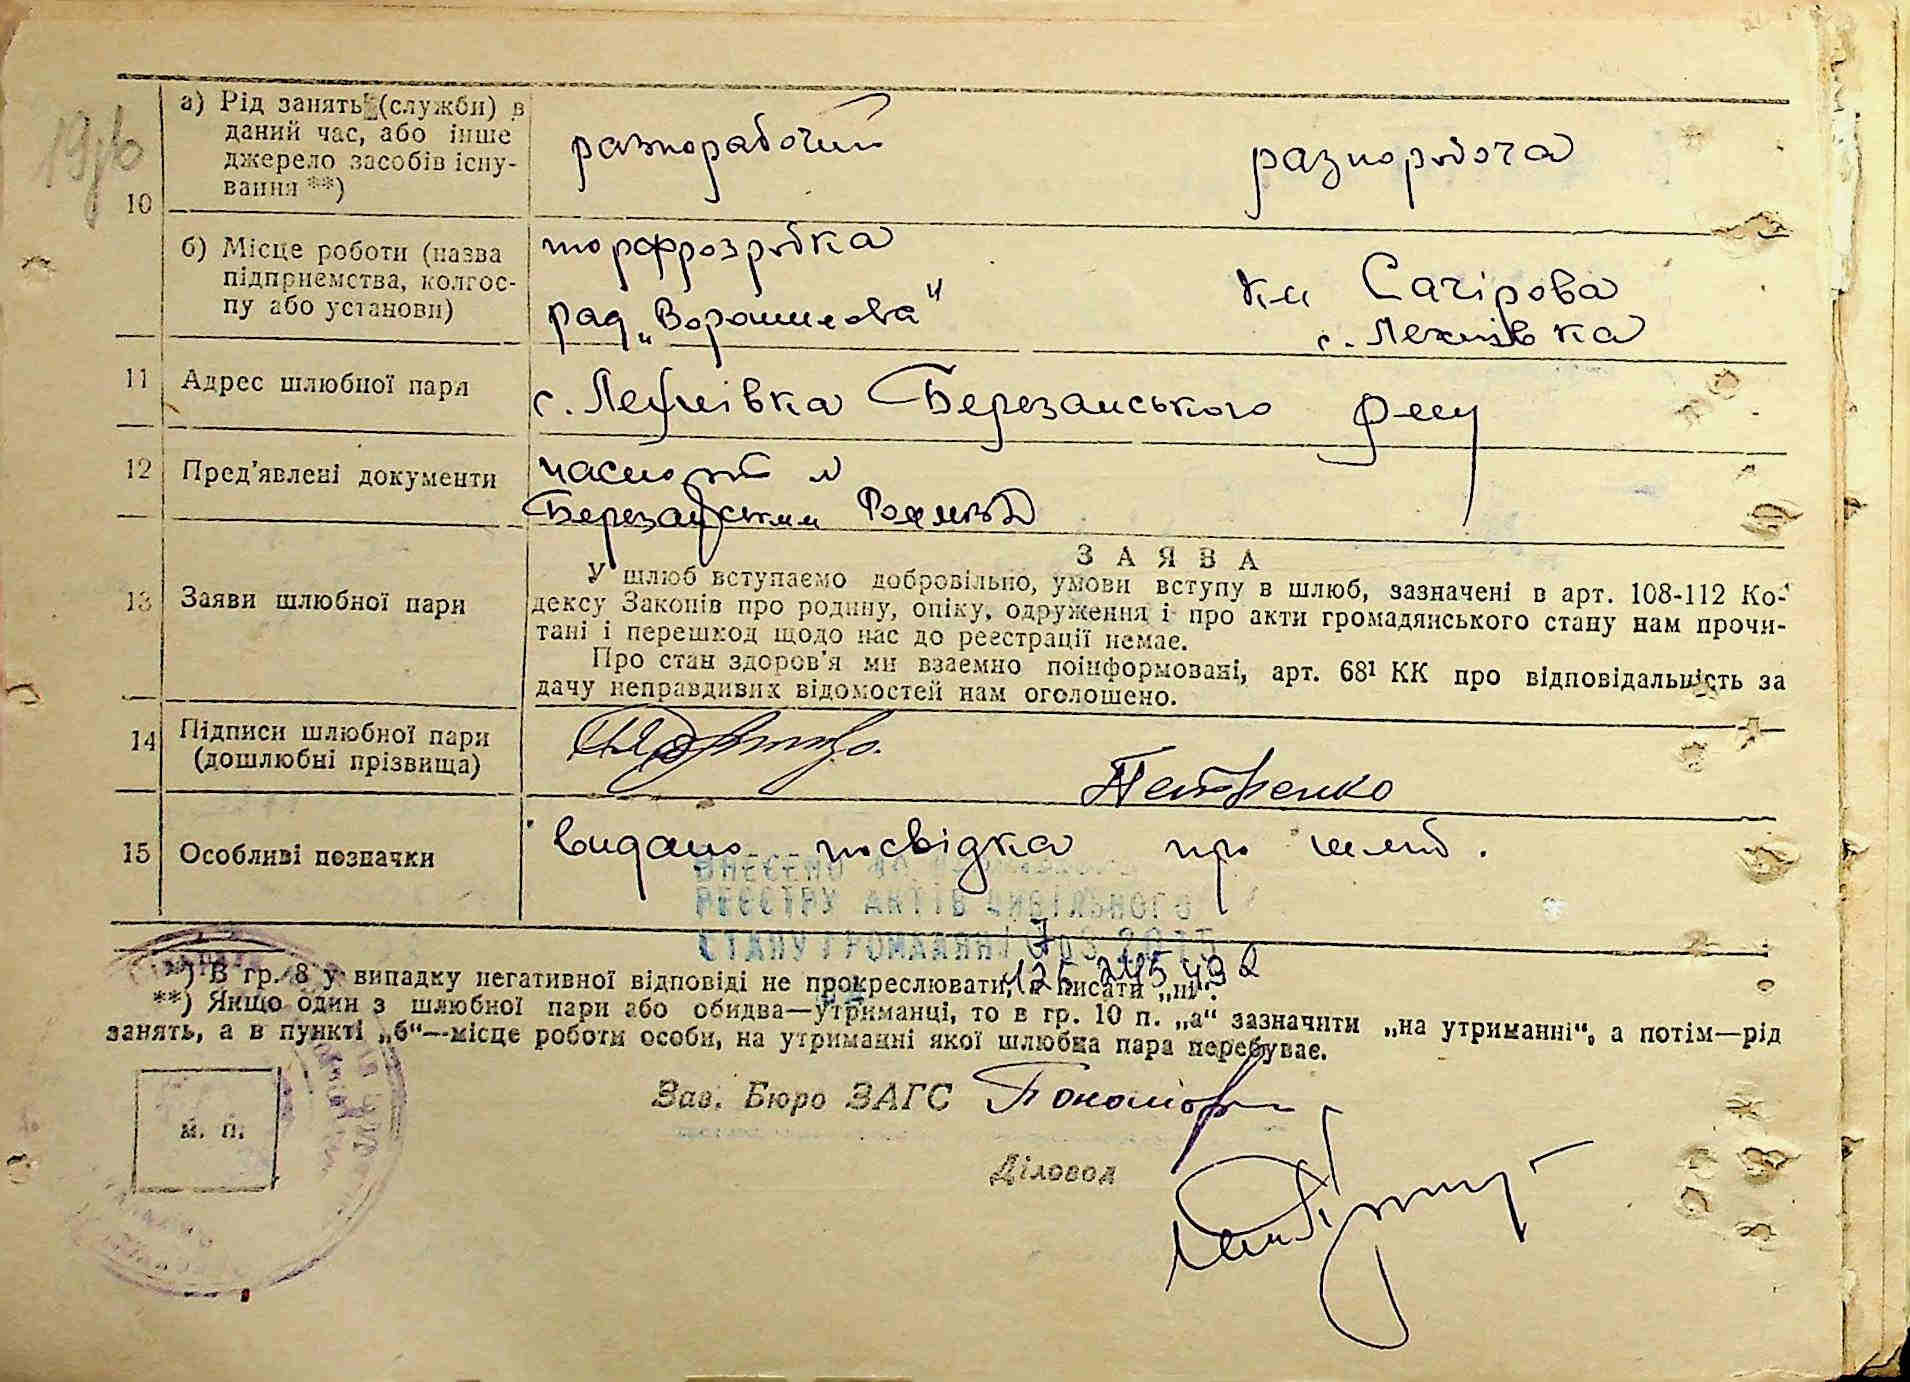 а) Рід занять (служби) в
даний час, або інше
джерело засобів існу-
вання **)
10
разнорабочий
разнорабоча
б) Місце роботи (назва
підприємства, колгос-
пу або установи)
торфрозрабка
рад „Ворошилова"
с.
11 Адрес шлюбної пари
с. Лехнівка Березанського р-ну
12 Пред'явлені документи
паспорт
Березанським
13 Заяви шлюбної пари
ЗАЯВА
У шлюб вступаємо добровільно, умови вступу в шлюб, зазначені в арт. 108-112 Ко-
дексу Законів про родину, опіку, одруження і про акти громадянського стану нам прочи-
тані і перешкод щодо нас до реєстрації немає.
Про стан здоров'я ми взаємно поінформовані, арт. 68¹ КК про відповідальність за
дачу неправдивих відомостей нам оголошено.
14 Підписи шлюбної пари
(дошлюбні прізвища)
Петренко
15 Особливі позначки
видано посвідка про шлюб.
ВНЕСЕНО ДО
РЕЄСТРУ АКТІВ ЦИВІЛЬНОГО
СТАНУ ГРОМАДЯН
*) В гр. 8 у випадку негативної відповіді не прокреслювати, а писати „ні".
**) Якщо один з шлюбної пари або обидва—утриманці, то в гр. 10 п. „а" зазначити „на утриманні", а потім—рід
занять, а в пункті „б"—місце роботи особи, на утриманні якої шлюбна пара перебуває.
Зав. Бюро ЗАГС
м. п.
Діловод